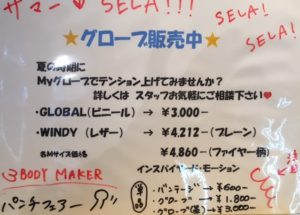 サマー♥SELA!!!
SELA!
SELA!
★グローブ販売中★
夏の時期に
Myグローブでテンション上げてみませんか？
詳しくは スタッフお気軽にご相談下さい♥
・GLOBAL(ビニール) → ¥3,000−
・WINDY（レザー） → ¥4,212−(プレーン)
各Mサイズ価格 ¥4,860−(ファイヤー柄)
インスパイヤード・モーション
BODY MAKER
パンチフェアー
・バンテージ→¥600−
・グローブ→¥1,800
・グローブ(革)→¥3,000−